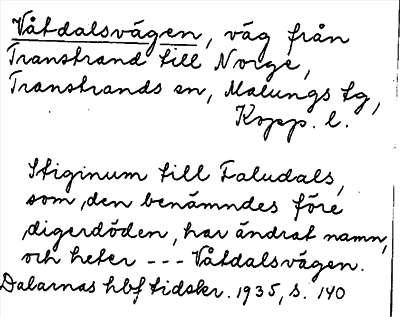 Våtdalsvägen, väg från
Transtrand till Norge,
Transtrands sn, Malungs tg,
Kopp. l.
Stiginum till Faludals,
som den benämndes före
digerdöden, har ändrat namn,
och heter --- Våtdalsvägen.
Dalarnas hbf tidskr. 1935, s. 140